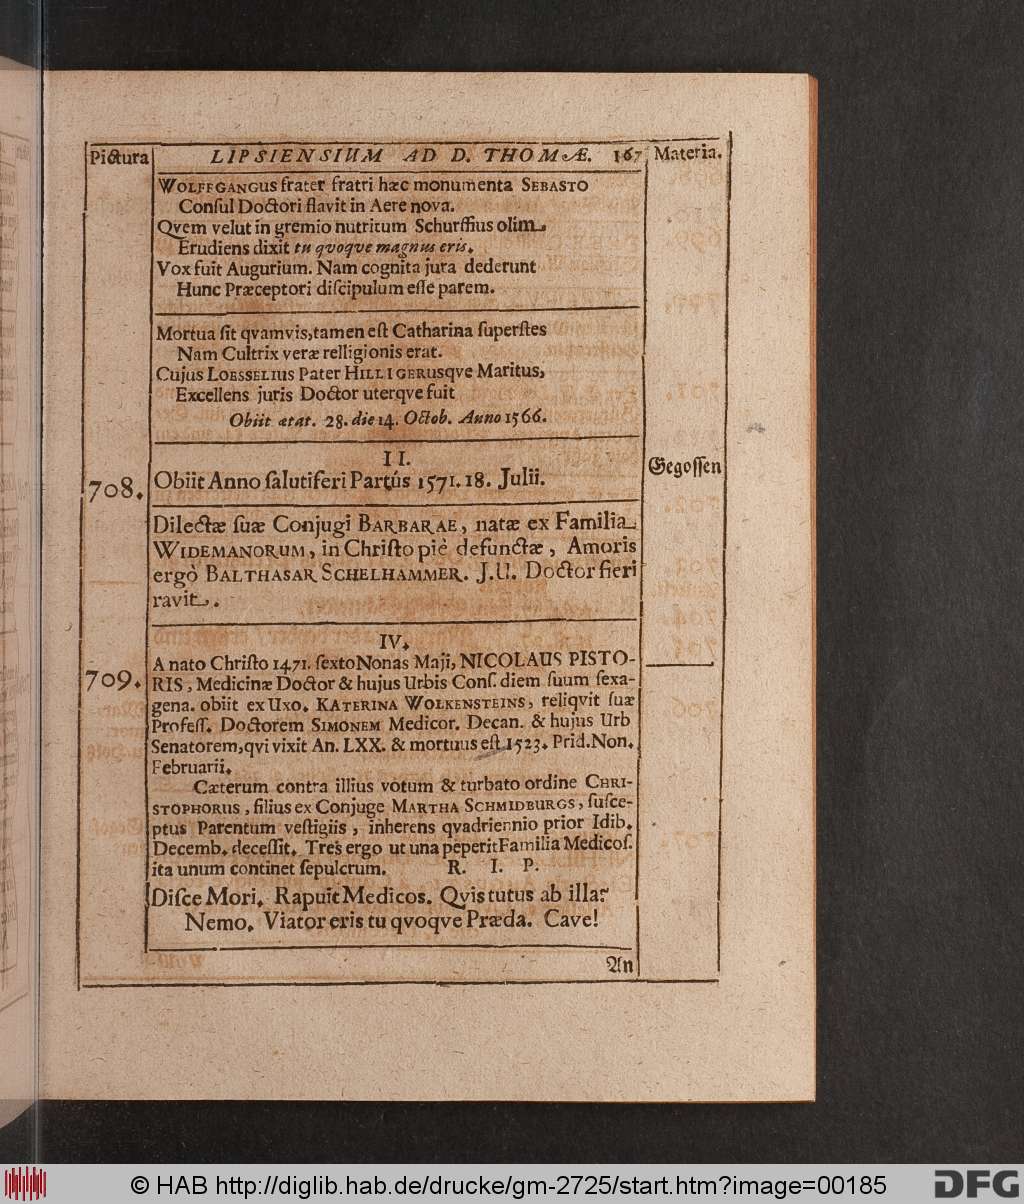 Pictura LIPSIENSIUM AD D. THOMÆ. 167 Materia.
WOLFFGANGUS frater fratri hæc monumenta SEBASTO
Conſul Doctori flavit in Aere nova.
Qvem velut in gremio nutritum Schurffius olim
Erudiens dixit tu qvoqve magnus eris.
Vox fuit Augurium. Nam cognita jura dederunt
Hunc Præceptori diſcipulum eſſe parem.
Mortua ſit qvamvis, tamen eſt Catharina ſuperſtes
Nam Cultrix veræ relligionis erat.
Cujus LOESSELIUS Pater HILLIGERUSqve Maritus,
Excellens juris Doctor uterqve fuit
Obiit ætat. 28. die 14. Octob. Anno 1566.
II.
708. Obiit Anno ſalutiferi Partús 1571. 18. Julii.
Gegoſſen
Dilectæ ſuæ Conjugi BARBARAE, natæ ex Familia
WIDEMANORUM, in Chriſto piè defunctæ, Amoris
ergò BALTHASAR SCHELHAMMER. J.U. Doctor fieri
ravit.
IV.
709. A nato Chriſto 1471. ſexto Nonas Maji, NICOLAUS PISTO-
RIS, Medicinæ Doctor & hujus Urbis Conſ. diem ſuum ſexa-
gena. obiit ex Uxo. KATERINA WOLKENSTEINS, reliqvit ſuæ
Profeſſ. Doctorem SIMONEM Medicor. Decan. & hujus Urb
Senatorem, qvi vixit An. LXX. & mortuus eſt 1523. Prid. Non.
Februarii.
Cæterum contra illius votum & turbato ordine CHRI-
STOPHORUS, filius ex Conjuge MARTHA SCHMIDBURGS, ſuſce-
ptus Parentum veſtigiis, inherens qvadriennio prior Idib.
Decemb. deceſſit. Tres ergo ut una peperit Familia Medicoſ.
ita unum continet ſepulcrum. R. I. P.
Diſce Mori. Rapuit Medicos. Qvis tutus ab illa?
Nemo. Viator eris tu qvoqve Præda. Cave!
An
© HAB http://diglib.hab.de/drucke/gm-2725/start.htm?image=00185
DFG